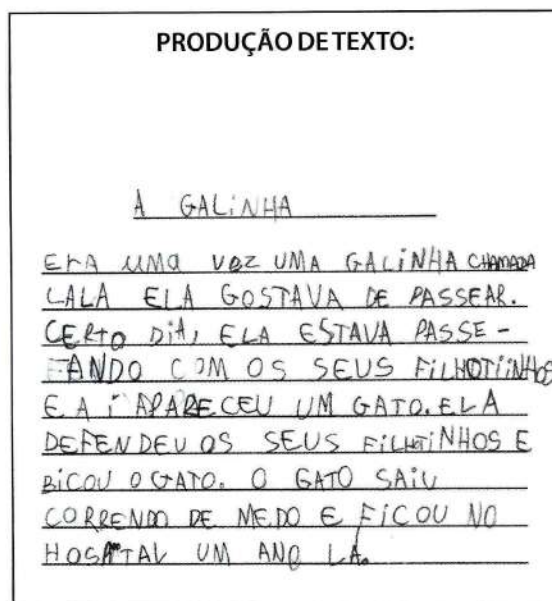 PRODUÇÃO DE TEXTO:
A GALINHA
ERA UMA VEZ UMA GALINHA CHAMADA
LALA ELA GOSTAVA DE PASSEAR.
CERTO DIA, ELA ESTAVA PASSE-
ANDO COM OS SEUS FILHOTIINHOS
E AI APARECEU UM GATO. ELA
DEFENDEU OS SEUS FILHOTINHOS E
BICOU O GATO. O GATO SAIU
CORRENDO DE MEDO E FICOU NO
HOSPITAL UM ANO LÁ.